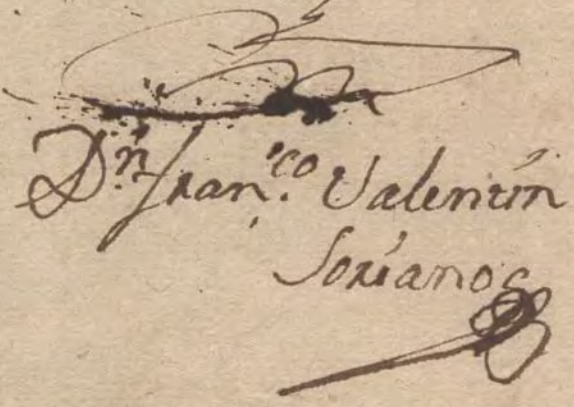 Dⁿ. Franᶜᵒ. Valentin
Soriano